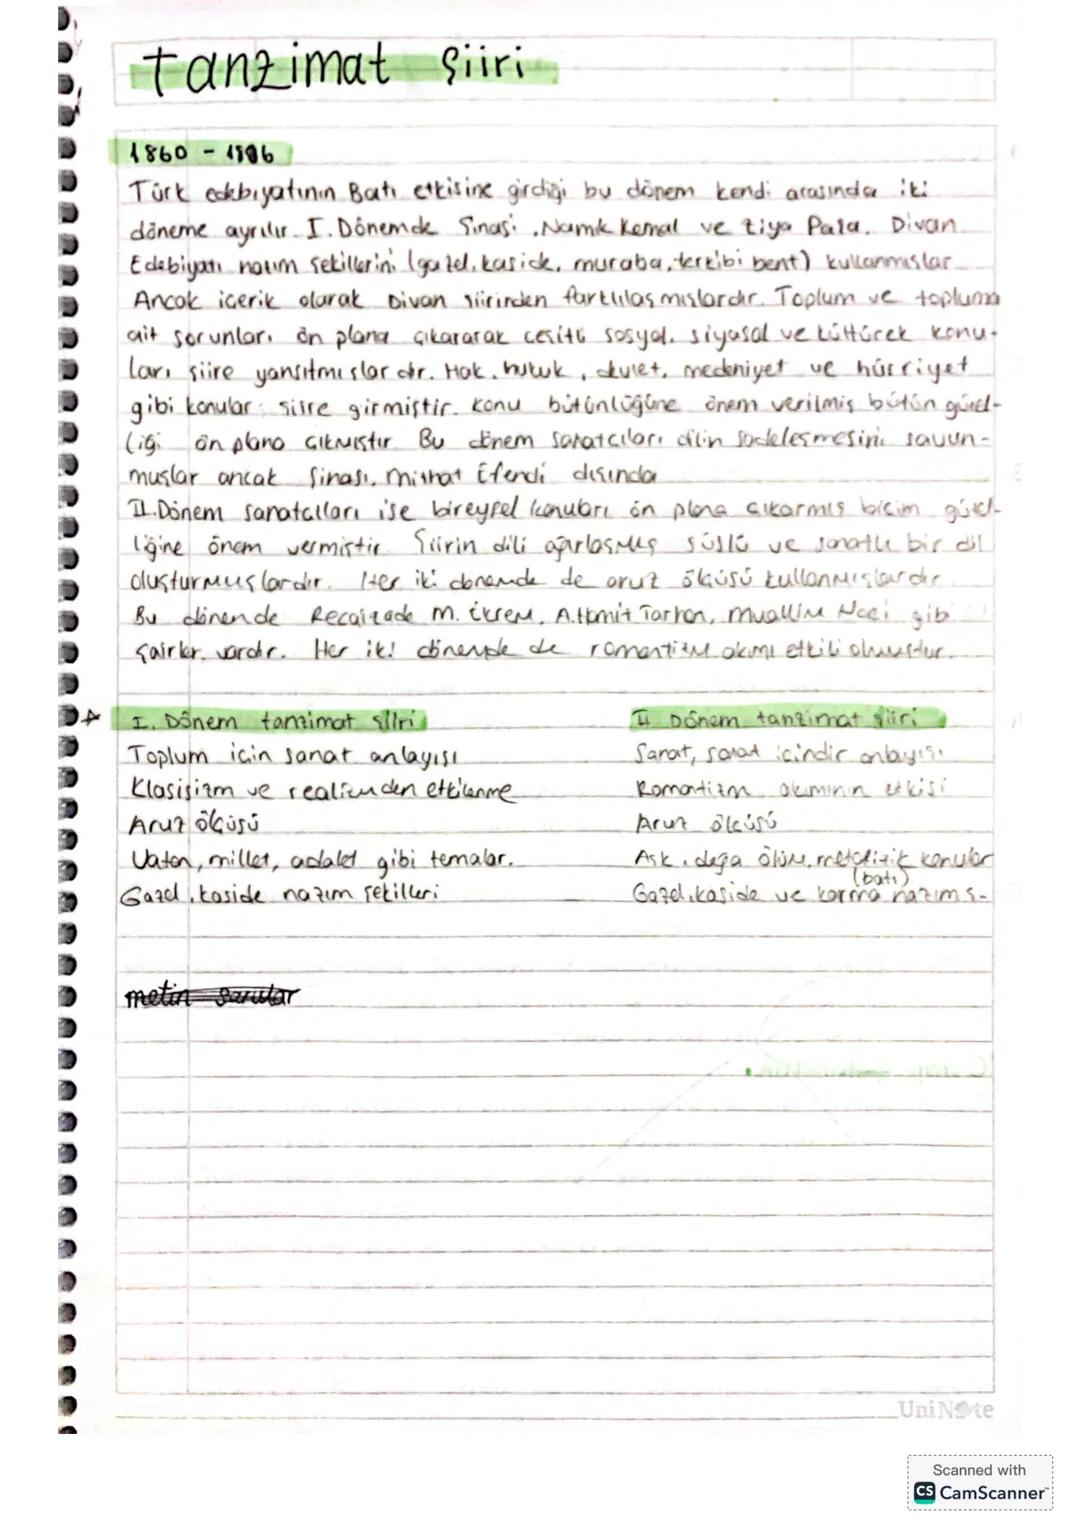 tanzimat şiiri
1860 - 1896
Türk edebiyatının Batı etkisine girdiği bu dönem kendi arasında iki
döneme ayrılır. I. Dönemde Şinasi, Namık Kemal ve Ziya Paşa. Divan
Edebiyatı nazım şekillerini (gazel, kaside, muraba, terkibi bent) kullanmışlar
Ancak içerik olarak Divan şiirinden farklılaşmışlardır. Toplum ve topluma
ait sorunları ön plana çıkararak çeşitli sosyal, siyasal ve kültürek konu-
ları şiire yansıtmışlardır. Hak, hukuk, devlet, medeniyet ve hürriyet
gibi konular şiire girmiştir. Konu bütünlüğüne önem verilmiş bütün güzel-
liği ön plana çıkmıştır. Bu dönem sanatçıları dilin sadeleşmesini savun-
muşlar ancak Şinasi, Mithat Efendi dışında
II. Dönem sanatçıları ise bireysel konuları ön plana çıkarmış biçim güzel-
liğine önem vermiştir. Şiirin dili ağırlaşmış süslü ve sanatlı bir dil
oluşturmuşlardır. Her iki dönemde de aruz ölçüsü kullanmışlardır.
Bu dönemde Recaizade M. Ekrem, A. Hamit Tarhan, Muallim Naci gibi
şairler vardır. Her iki dönemde de romantizm akımı etkili olmuştur.
I. Dönem tanzimat şiiri
Toplum için sanat anlayışı
Klasisizm ve realizmden etkilenme
Aruz ölçüsü
Vatan, millet, adalet gibi temalar.
Gazel, kaside nazım şekilleri
II. Dönem tanzimat şiiri
Sanat, sanat içindir anlayışı
Romantizm akımının etkisi
Aruz ölçüsü
Aşk, doğa ölüm, metafizik konular
(batı)
Gazel, kaside ve karma nazım ş.
metin
UniNote
Scanned with
CS CamScanner